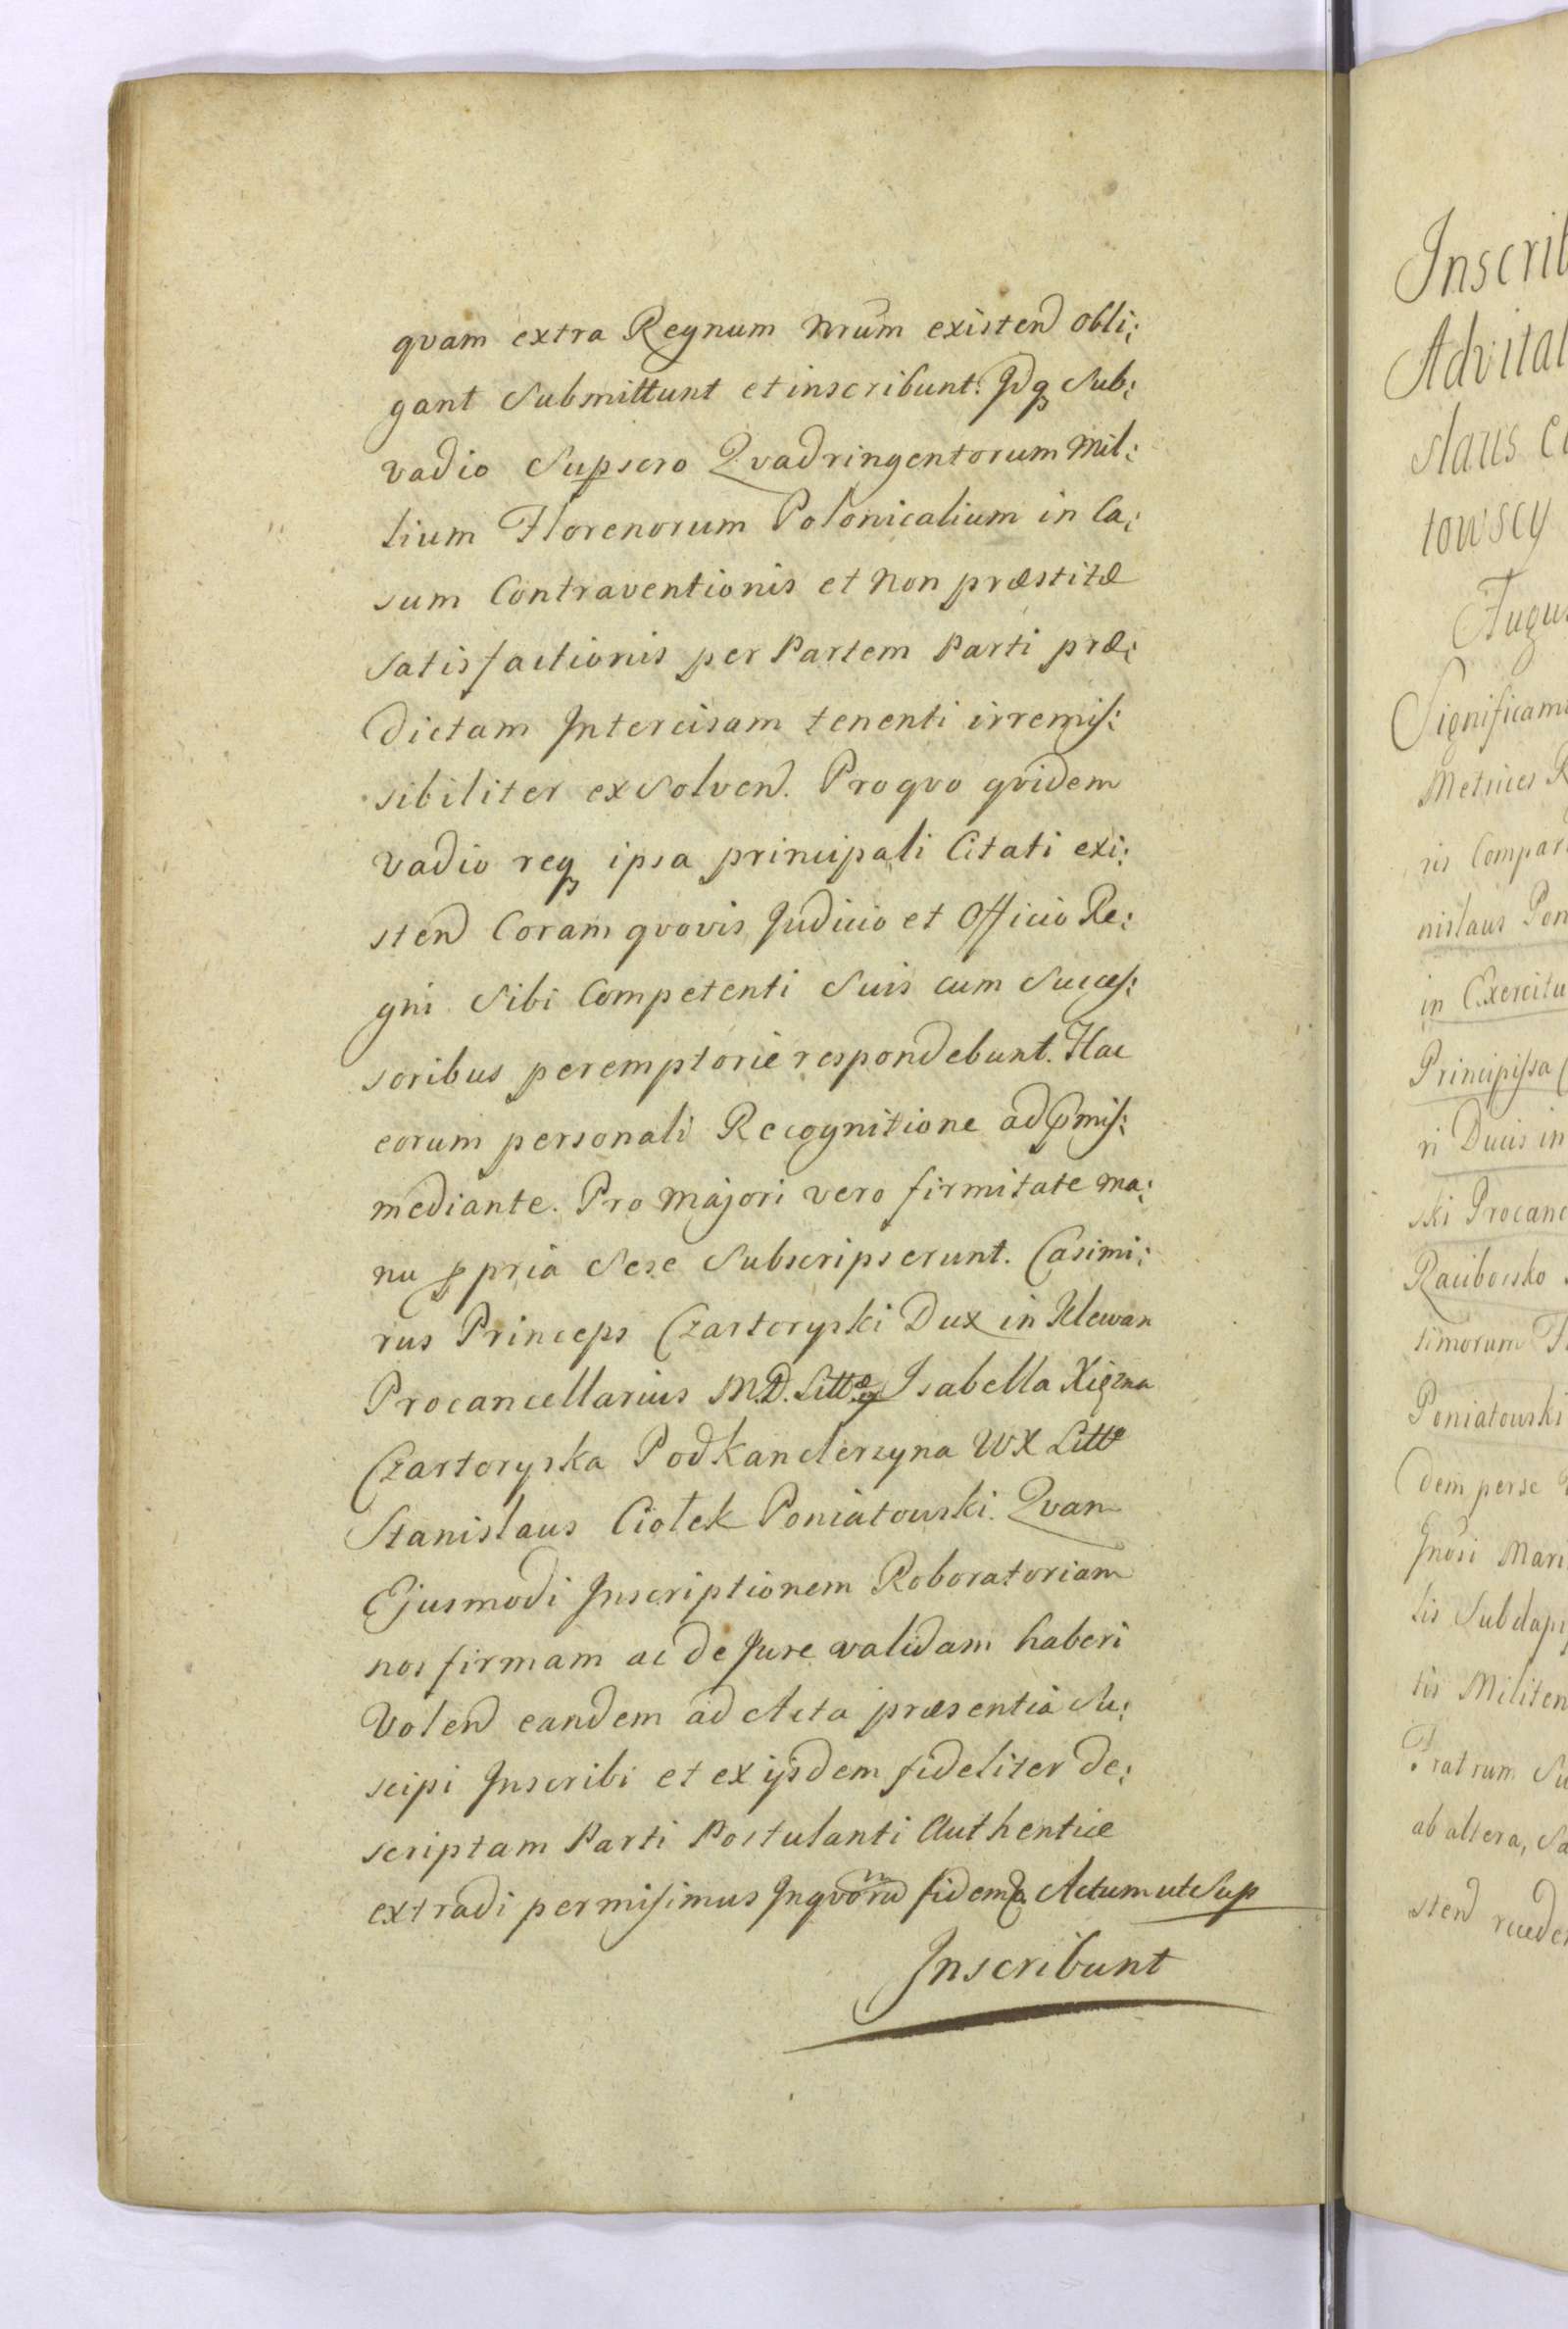 qvam extra Regnum nrum existen obli:
gant Submittunt et inscribunt. Idq Sub:
vadio Supsero Qvadringentorum Mil:
lium Florenorum Polonicalium in Ca:
sum Contraventionis et non præstitæ
Satisfactionis per Partem Parti præ:
dictam Intercisam tenenti irremis:
sibiliter exsolven. Pro qvo qvidem
vadio req ipsa principali Citati exi:
sten Coram qvovis Judicio et Officio Re:
gni Sibi Competenti Suis cum Succes:
soribus peremptorie respondebunt. Hac
eorum personali Recognitione ad pmis:
mediante. Pro majori vero firmitate ma:
nu ppria Sese Subscripserunt. Casimi:
rus Princeps Czartoryski Dux in Klewan
Procancellarius M.D. Litt. Isabella Xięzna
Czartoryska Podkanclerzyna WX Litt
Stanislaus Ciołek Poniatowski. Qvam
Ejusmodi Inscriptionem Roboratoriam
nos firmam ac de Jure validam haberi
Volen eandem ad Acta præsentia Su:
scipi Inscribi et ex ijsdem fideliter de:
scriptam Parti Postulanti Authentice
extradi permisimus In qvoru fidem Actum ut Sup
Inscribunt
Inscrib
Advital
slaus
towscy
Augus
Significam
Metrices R
ris Compar
nislaus Pon
in Exercitu
Principissa
ri Ducis in
ski Procanc
Raciborsko
timorum
Poniatowski
dem perse
Mari
lis Subdapi
tis Militen
Fratrum Su
ab altera, Sa
sten